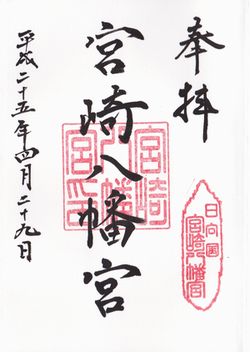 奉拝
宮崎八幡宮
平成二十五年四月二十九日
日向国
宮崎八幡宮
宮崎
八幡
宮印